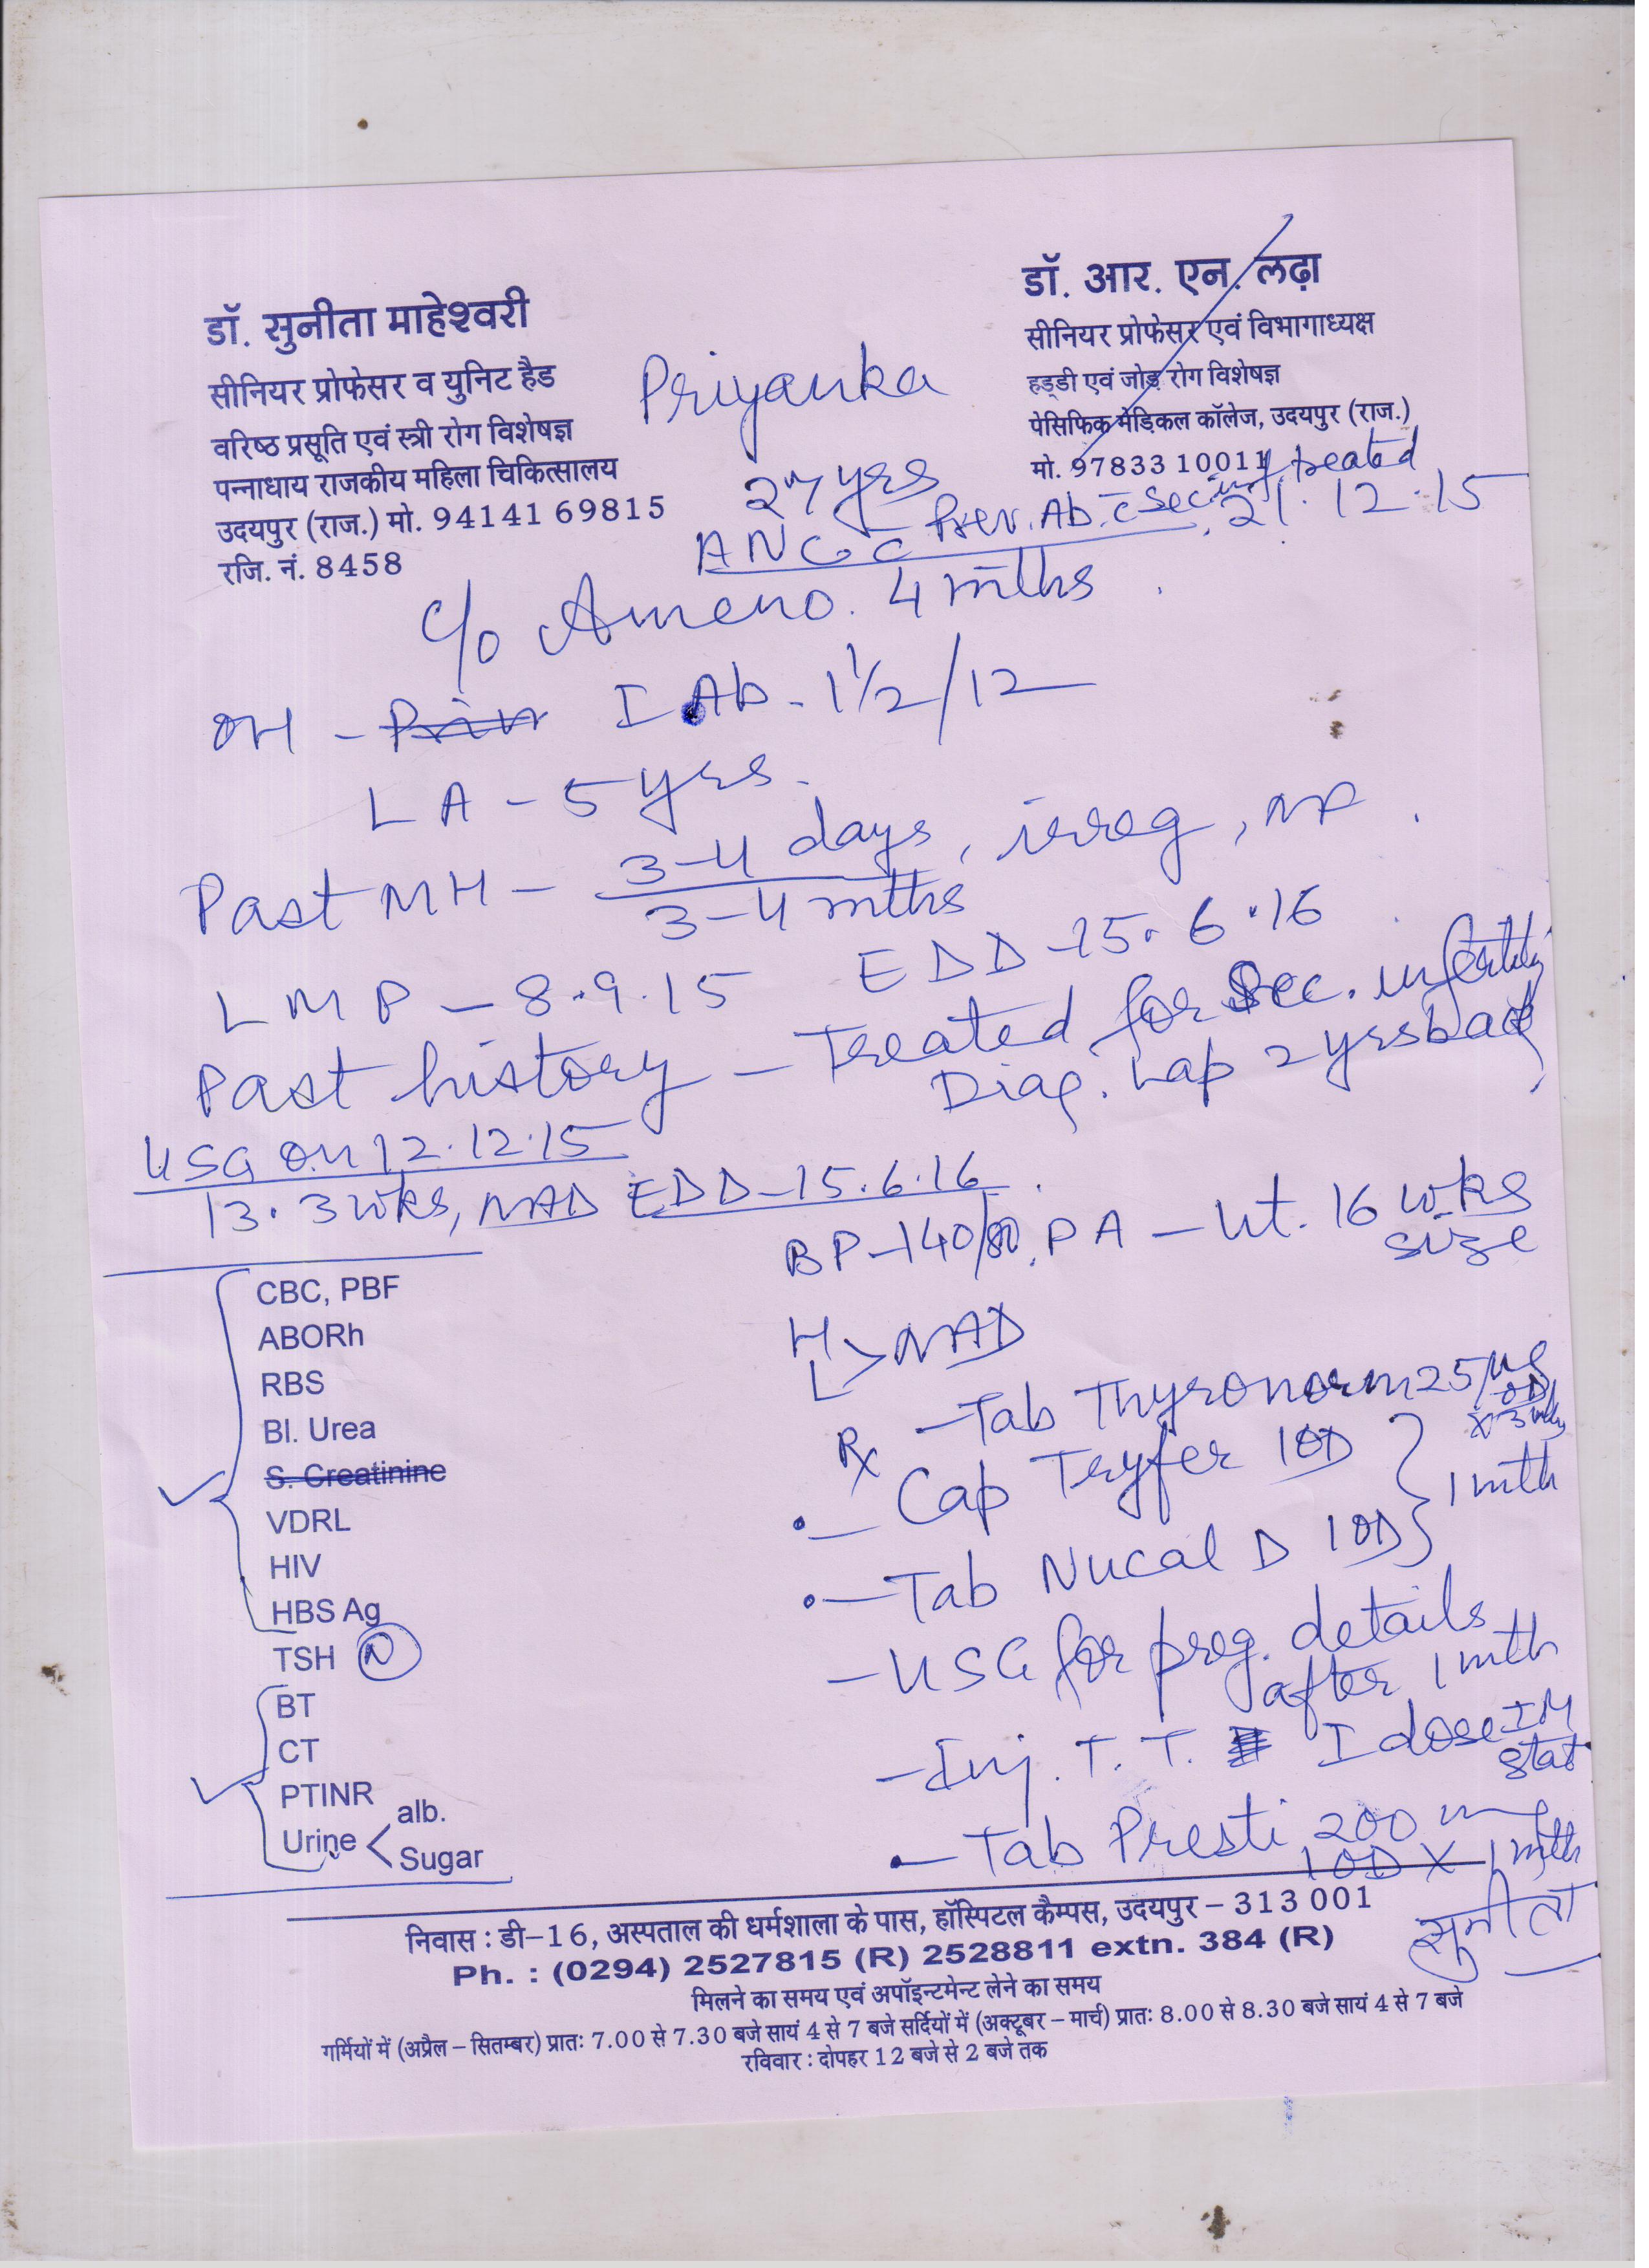 डॉ. सुनीता माहेश्वरी
सीनियर प्रोफेसर व युनिट हैड
वरिष्ठ प्रसूति एवं स्त्री रोग विशेषज्ञ
पन्नाधाय राजकीय महिला चिकित्सालय
उदयपुर (राज.) मो. 94141 69815
रजि. नं. 8458
डॉ. आर. एन. लढ़ा
सीनियर प्रोफेसर एवं विभागाध्यक्ष
हड्डी एवं जोड़ रोग विशेषज्ञ
पेसिफिक मेडिकल कॉलेज, उदयपुर (राज.)
मो. 97833 10011
Priyanka
27 yrs
21.12.15
ANC c Prev. Ab. c Sec inf. treated
C/o Ameno. 4 mths
OH - I Ab - 1½/12
LA - 5 yrs.
Past MH - 3-4 days / 3-4 mths, irreg, NP
LMP - 8.9.15 EDD - 15.6.16
Past history - Treated for Sec. infertility
Diag. Lap 2 yrs back
USG on 12.12.15
13.3 wks, NAD EDD - 15.6.16
BP - 140/80, PA - Ut. 16 wks
size
H
L > NAD
Rx - Tab Thyronorm 25 µg
OD
x 3 mths
- Cap Tryfer 1 OD
- Tab Nucal D 1 OD } 1 mth
- USG for preg. details
after 1 mth
- Inj. T.T. I dose IM
stat
- Tab Presti 200 mg
1 OD x 1 mth
सुनीता
CBC, PBF
ABORh
RBS
Bl. Urea
S. Creatinine
VDRL
HIV
HBS Ag
TSH N
BT
CT
PTINR
Urine < alb.
Sugar
निवास : डी-16, अस्पताल की धर्मशाला के पास, हॉस्पिटल कैम्पस, उदयपुर - 313 001
Ph. : (0294) 2527815 (R) 2528811 extn. 384 (R)
मिलने का समय एवं अपॉइन्टमेन्ट लेने का समय
गर्मियों में (अप्रैल - सितम्बर) प्रातः 7.00 से 7.30 बजे सायं 4 से 7 बजे सर्दियों में (अक्टूबर - मार्च) प्रातः 8.00 से 8.30 बजे सायं 4 से 7 बजे
रविवार : दोपहर 12 बजे से 2 बजे तक